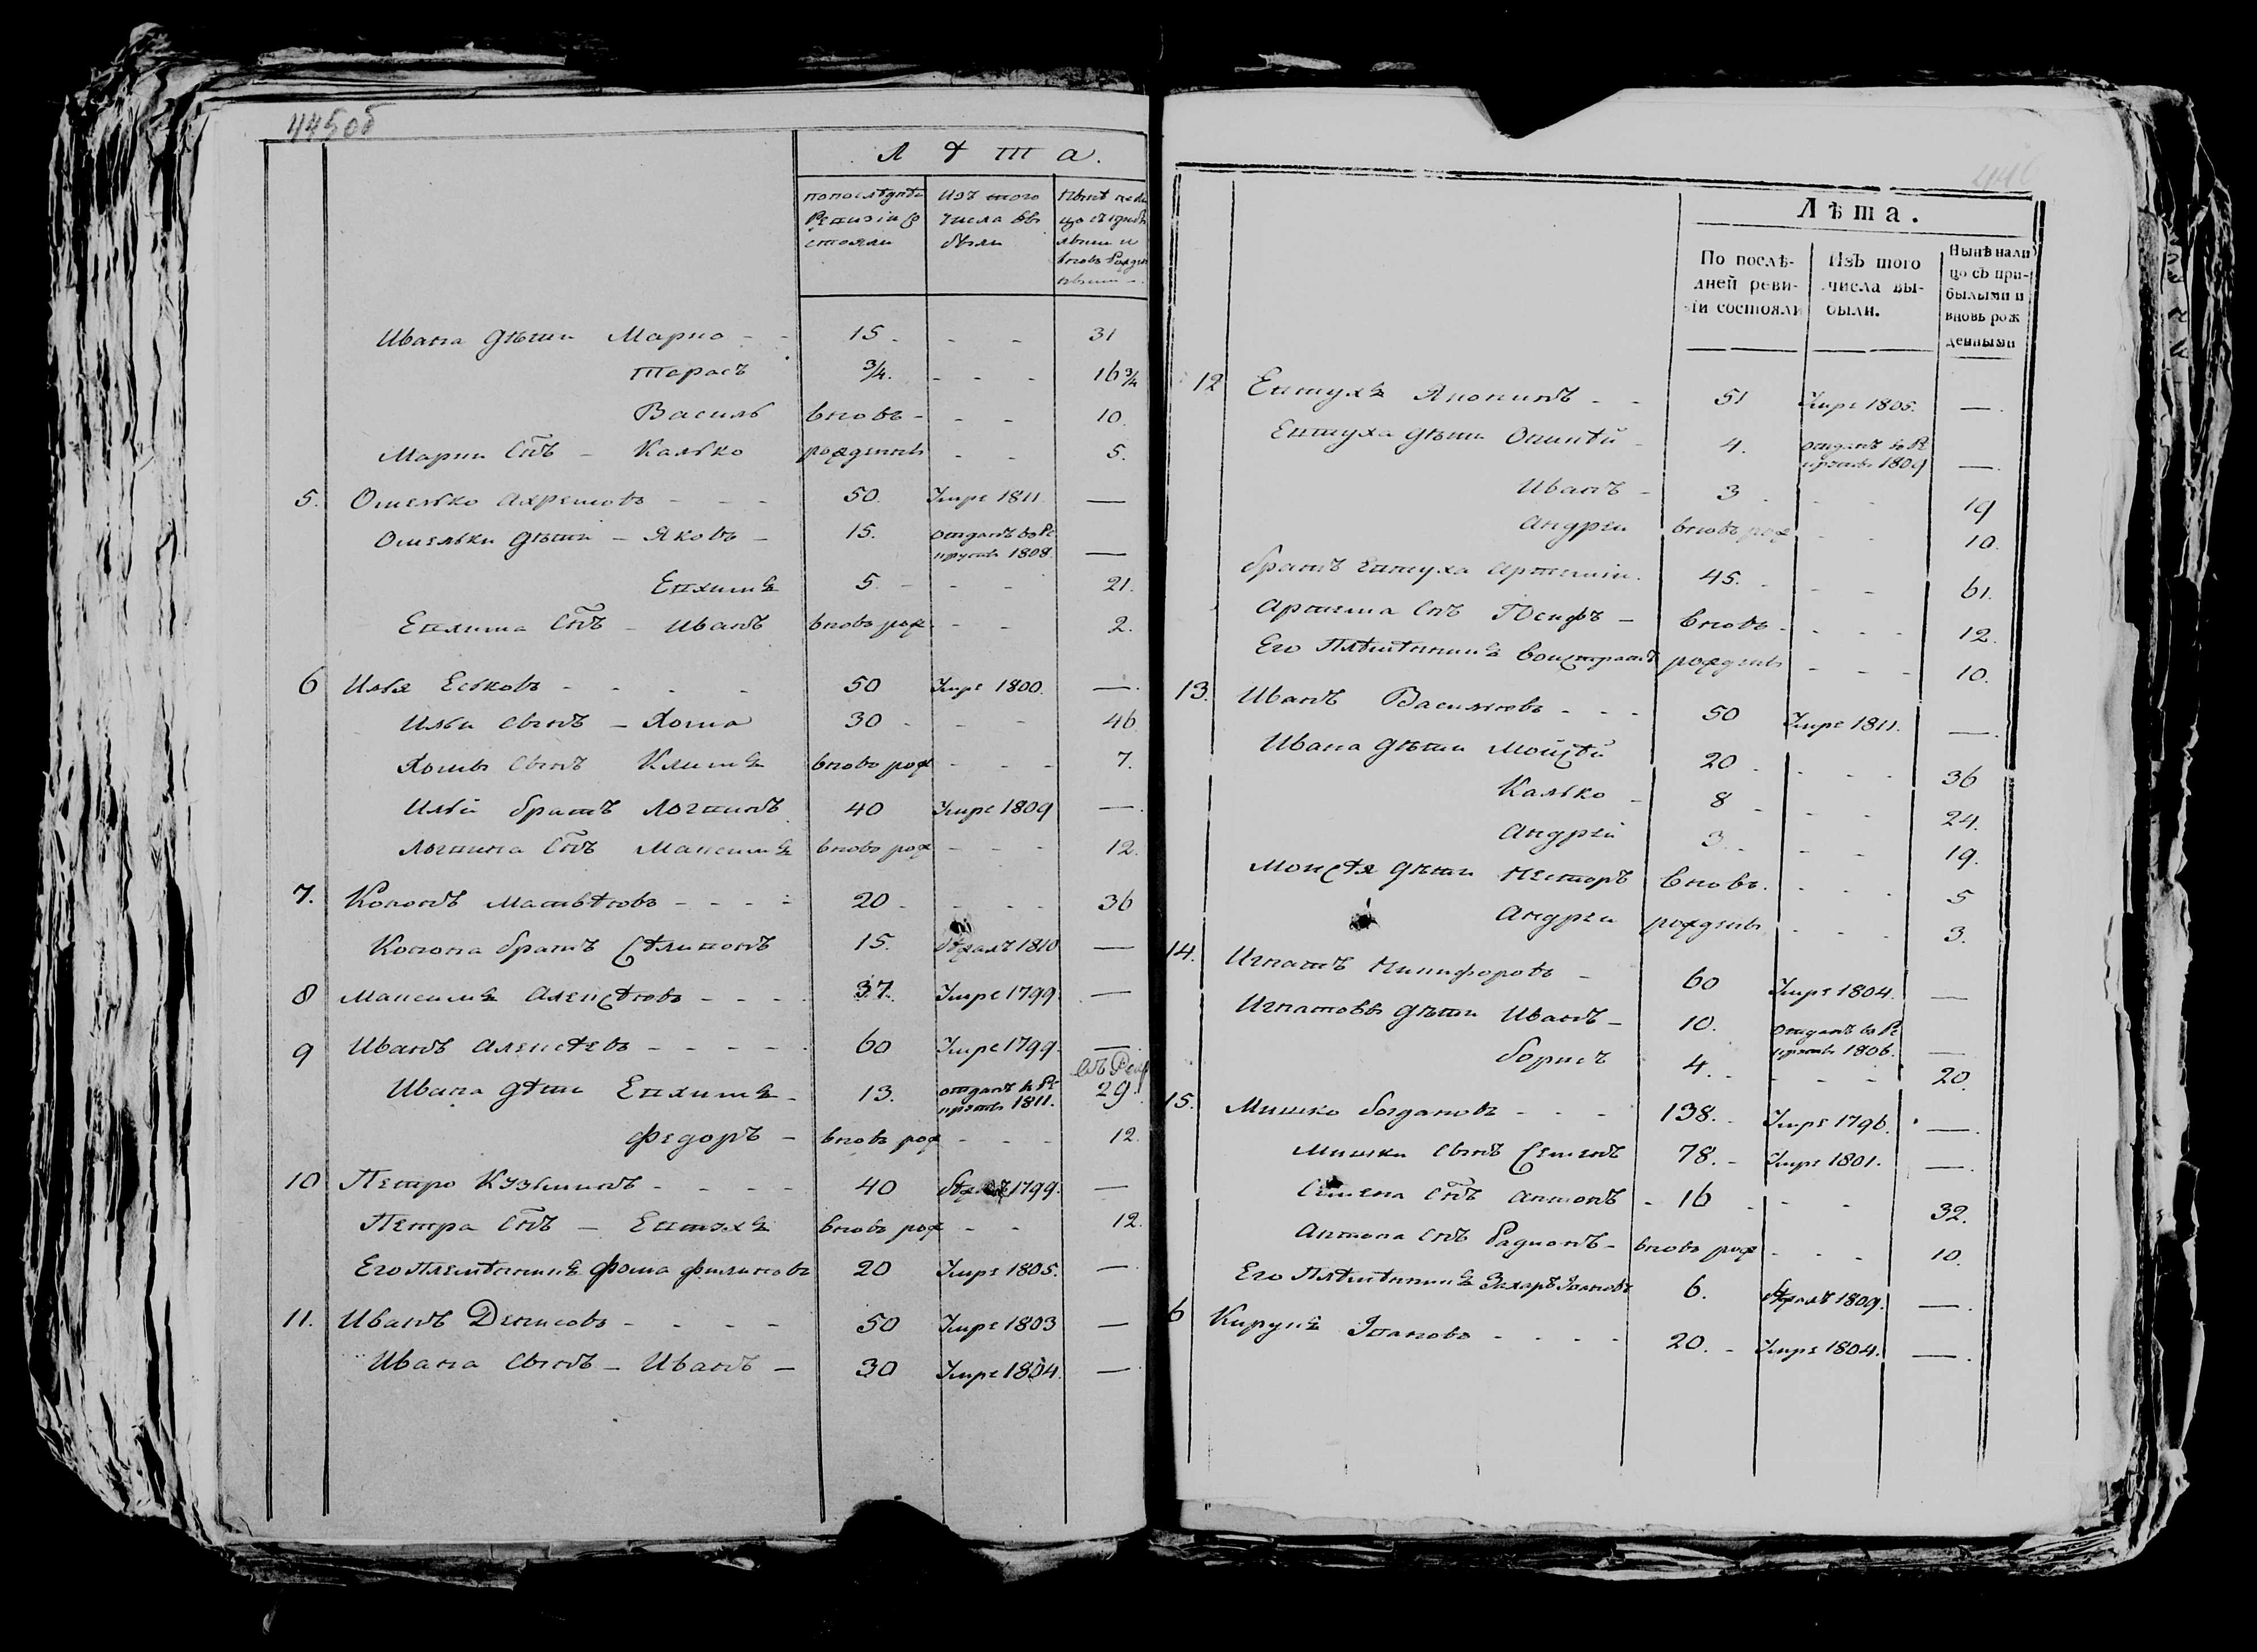 445об
Лѣта.
по последнѣ Ревизіи со стояли
Изъ того числа вы были
Нынѣ нали цо съ прибы лыми и вновь рожде нными
Ивана дѣти Марко - - 15. - - 31
Тарасъ 3/4. - - - 16 3/4
Василь вновь - - - 10.
Марки снъ - Калько рожденны - - 5.
5. Омелько Ахремовъ - - - 50. Умре 1811. —
Омельки дѣти - Яковъ - 15. отданъ въ Ре круты 1808. —
Евхимъ 5 - - - 21.
Евхима снъ - Иванъ вновь рож - - 2.
6 Илья Еськовъ - - - - 50 Умре 1800. —
Ильи сынъ - Хома 30 - - - 46.
Хомы сынъ Климъ вновь рож - - - 7.
Ильи братъ Логвинъ 40 Умре 1809 —
Логвина снъ Максимъ вновь рож - - - 12.
7. Кононъ Матвѣювъ - - - - 20 - - - - 36
Конона братъ Сѣлихонъ 15. бѣжалъ 1810 —
8 Максимъ Алексѣювъ - - - - 37. Умре 1799. —
9 Иванъ Алексѣевъ - - - - - 60 Умре 1799. —
Ивана дѣти Евхимъ - 13. отданъ в Ре круты 1811. 29.
Федоръ - вновь рож - - - 12.
10 Петро Кузьминъ - - - - 40 бѣжалъ 1799. —
Петра снъ - Евтухъ вновь рож - - 12.
Его племѣнникъ Фома Филиповъ 20 Умре 1805. —
11. Иванъ Денисовъ - - - - 50 Умре 1803 —
Ивана сынъ - Иванъ - 30 Умре 1804. —
446
Лѣта.
По послѣ- дней реви- зіи состояли
Изъ того числа вы- были.
Нынѣ нали цо съ при- былыми и вновь рож денными
12 Евтухъ - - 51 Умре 1805. —.
Евтуха дѣти - 4. отданъ въ Ре круты 1809 —.
Иванъ - 3 - - - 19
Андреи вновь рож - - 10.
братъ Евтуха Артемій. 45. - - - 61.
Артема снъ Іосифъ - вновь - - - - 12.
Его Плѣмѣнникъ рожденны - - - 10.
13. Иванъ Васильювъ - - - 50 Умре 1811. —.
Ивана дѣти Мойсѣй 20 - - - - 36
Калько - 8 - - - 24.
Андрей 3. - - - 19.
Моисѣя дѣти Несторъ вновь. - - - 5
Андреи рожденны - - - 3.
14. Игнатъ Никифоровъ - 60 Умре 1804. —
Игнатовы дѣти Иванъ - 10. отданъ в Ре круты 1806. —
Борисъ 4. - - - - 20.
15. Мишко Богдановъ - - - 138. - Умре 1796. —.
Мишки сынъ Семенъ 78. - Умре 1801. —.
Семена снъ Антонъ - 16 - - - 32.
Антона снъ Радионъ - вновь рож - - - 10.
Его Плѣмѣнникъ Захаръ Ивановъ 6. бѣжалъ 1809. —.
6 Кирухъ - - - - 20. - Умре 1804. —.